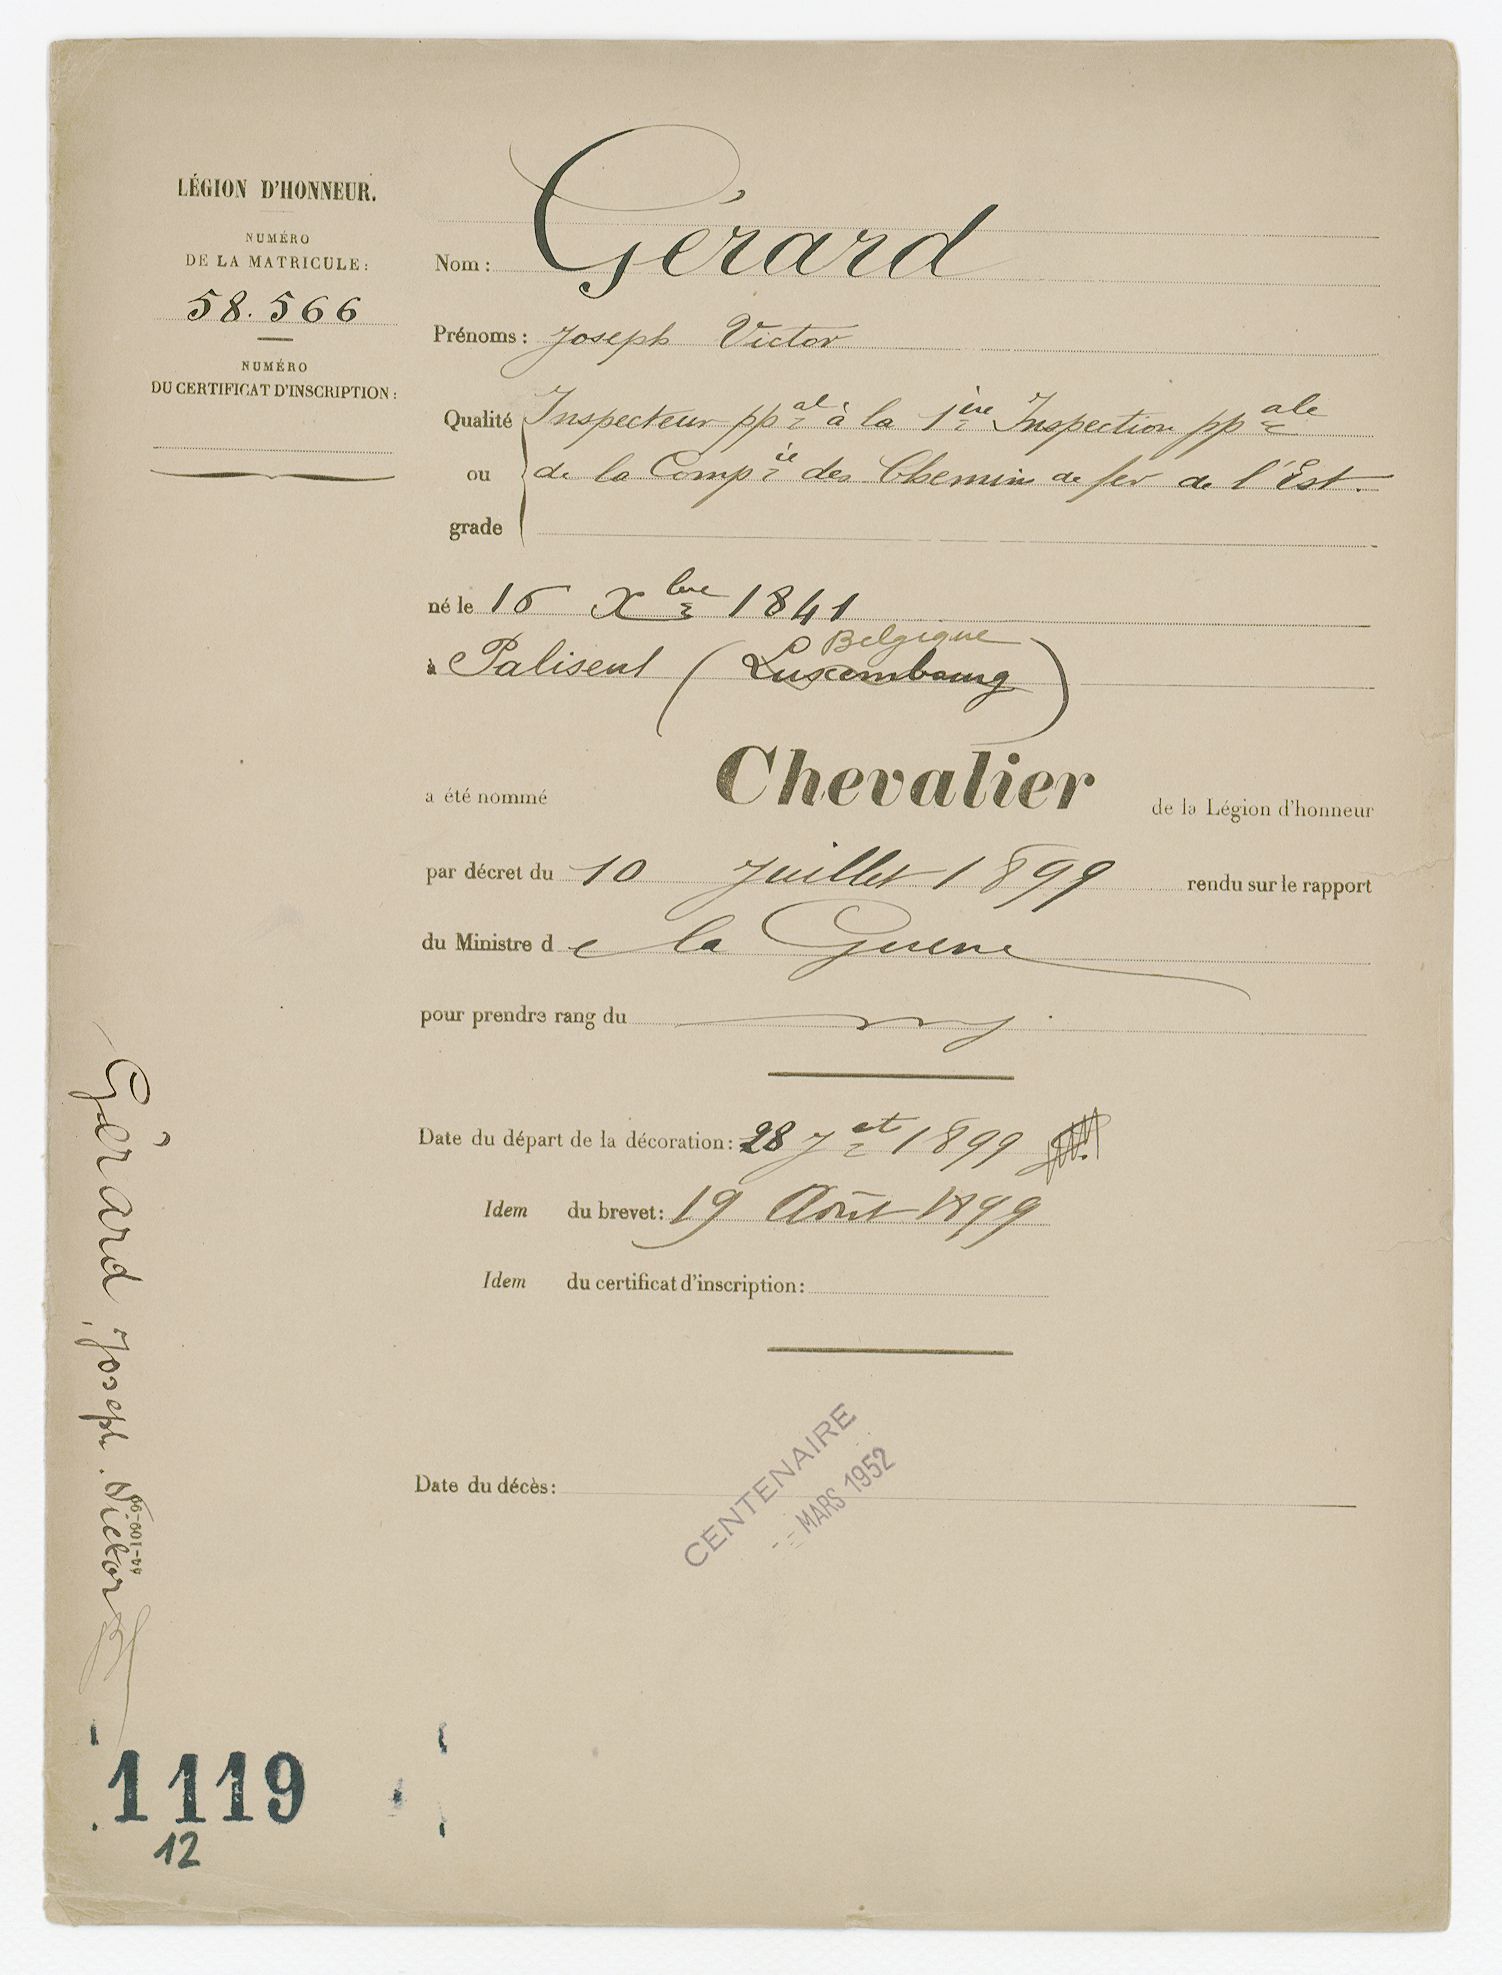 LÉGION D'HONNEUR.
NUMÉRO
DE LA MATRICULE:
58.566
NUMÉRO
DU CERTIFICAT D'INSCRIPTION:
Nom: Gérard
Prénoms: Joseph Victor
Qualité Inspecteur ppal à la 1ère Inspection ppale
ou de la Compie des Chemins de fer de l'Est.
grade
né le 16 Xbre 1841
Belgique
à Paliseul (Luxembourg)
a été nommé Chevalier de la Légion d'honneur
par décret du 10 Juillet 1899 rendu sur le rapport
du Ministre de la Guerre
pour prendre rang du
Date du départ de la décoration: 28 Jet 1899
Idem du brevet: 19 Août 1899
Idem du certificat d'inscription:
CENTENAIRE
MARS 1952
Date du décès:
Gérard, Joseph. Victor
44-109-99
1119
12